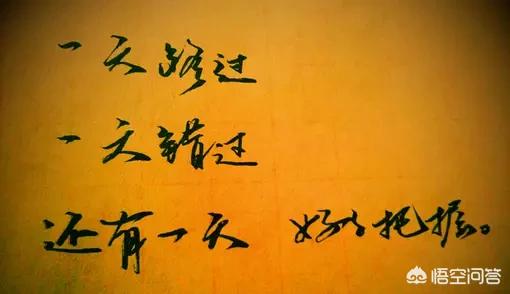 一天路过
一天错过
还有一天 好好把握。
悟空问答